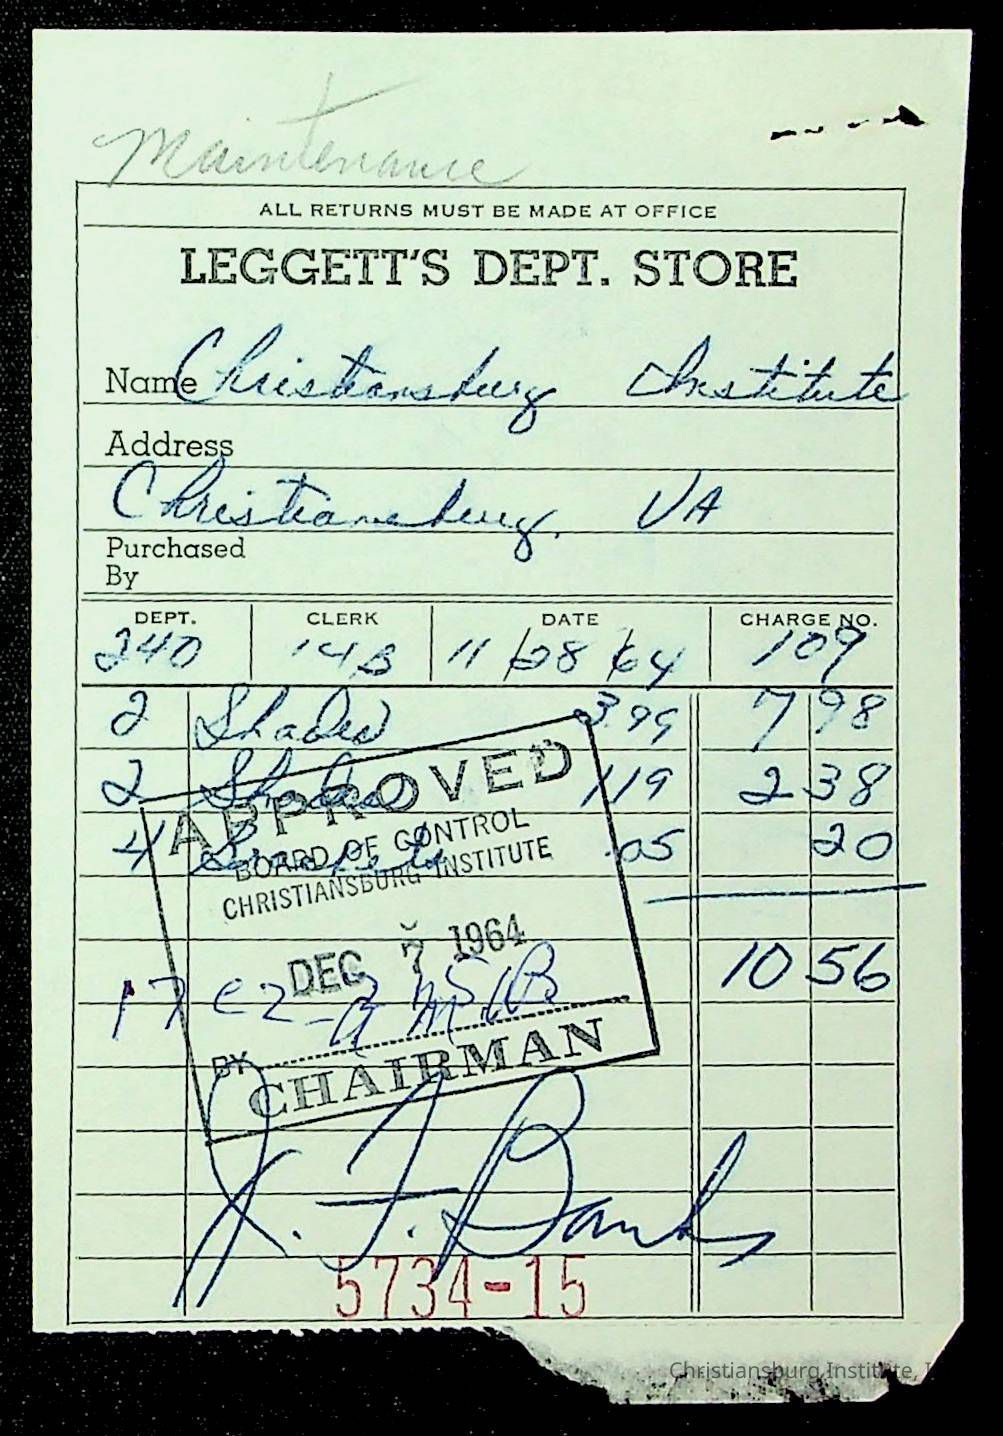 Maintenance
ALL RETURNS MUST BE MADE AT OFFICE
LEGGETT'S DEPT. STORE
Name Christiansburg Institute
Address
Christiansburg, VA
Purchased
By
DEPT. CLERK DATE CHARGE NO.
240 14B 11/28/64 109
2 Shades 3.99 7 98
2 Shades 1 19 2 38
4 Brackets .05 20
10 56
APPROVED
BOARD OF CONTROL
CHRISTIANSBURG INSTITUTE
DEC 7 1964
17
BY
CHAIRMAN
F. Banks
5734-15
Christiansburg Institute, I